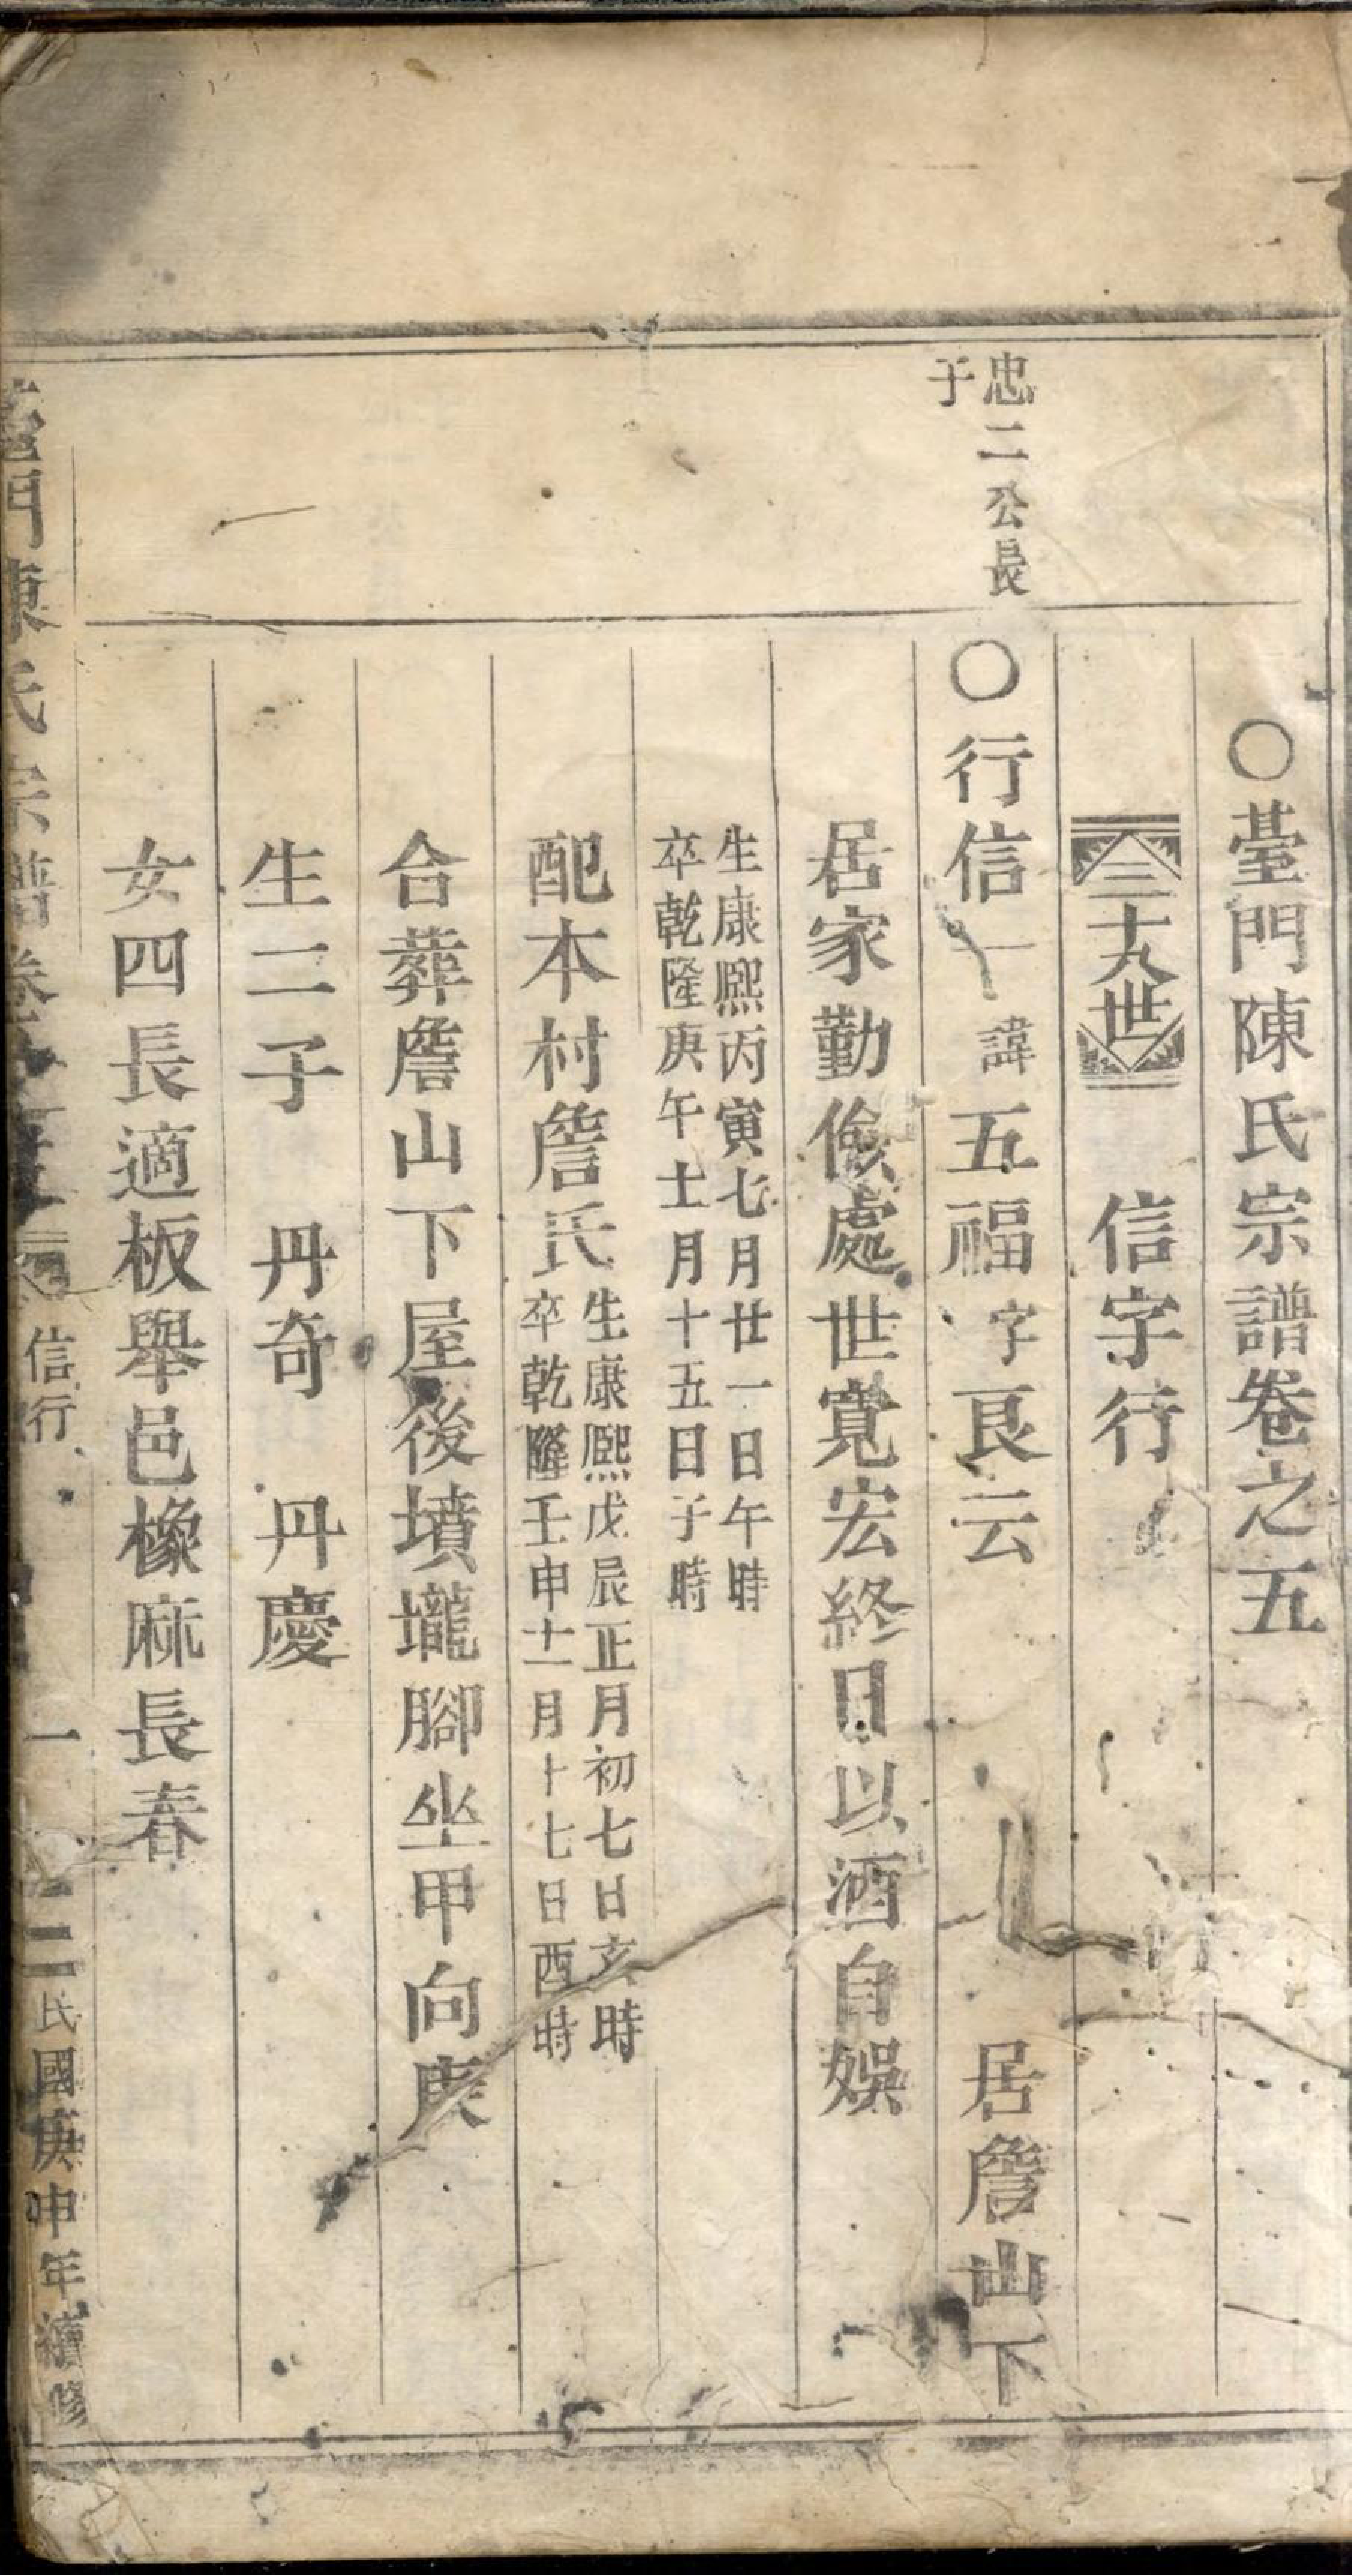 ○臺門陳氏宗譜卷之五
三十九世 信字行
忠二公長
子
○行信一諱五福字艮云 居詹山下
居家勤儉處世寬宏終日以酒自娛
生康熙丙寅七月廿一日午時
卒乾隆庚午十一月十五日子時
配本村詹氏
生康熙戊辰正月初七日亥時
卒乾隆壬申十一月十七日酉時
合葬詹山下屋後墳壠腳坐甲向庚
生二子 丹奇 丹慶
女四長適板舉邑橡麻長春
臺門陳氏宗譜卷 信行 一 民國庚申年續修